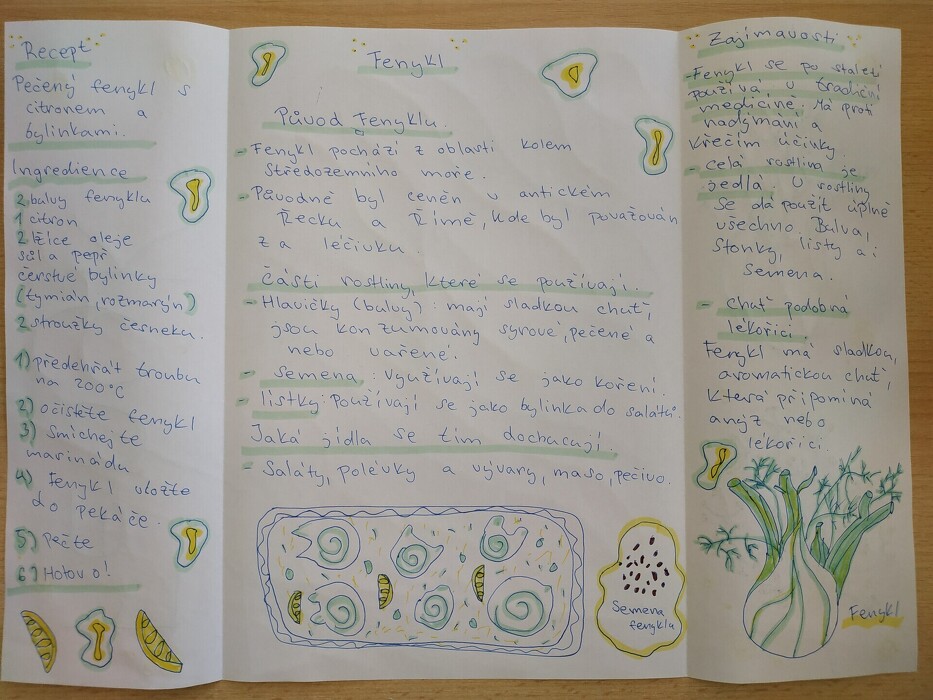 Recept
Pečený fenykl s
citronem a
bylinkami.
Ingredience
2 bulvy fenyklu
1 citron
2 lžíce oleje
sůl a pepř
čerstvé bylinky
(tymián, rozmarýn)
2 stroužky česneku.
1) předehřát troubu
na 200°C
2) očistěte fenykl
3) Smíchejte
marinádu
4) Fenykl vložte
do pekáče.
5) Pečte
6) Hotovo!
Fenykl
Původ Fenyklu.
- Fenykl pochází z oblasti kolem
Středozemního moře.
- Původně byl ceněn v antickém
Řecku a Římě, kde byl považován
za léčivku
části rostliny, které se používají.
- Hlavičky (bulvy): mají sladkou chuť,
jsou konzumovány syrové, pečené a
nebo vařené.
- semena: využívají se jako koření.
- lístky: používají se jako bylinka do salátů.
Jaká jídla se tím dochucují.
- Saláty, polévky a vývary, maso, pečivo.
Semena
fenyklu
Zajímavosti
- Fenykl se po staletí
používá v tradiční
medicíně. Má proti
nadýmání a
křečím účinky.
- celá rostlina je
jedlá. U rostliny
se dá použít úplně
všechno. Bulva,
stonky, listy a i
semena.
- chuť podobná
lékořici.
Fenykl má sladkou,
aromatickou chuť,
která připomíná
anýz nebo
lékořici.
Fenykl